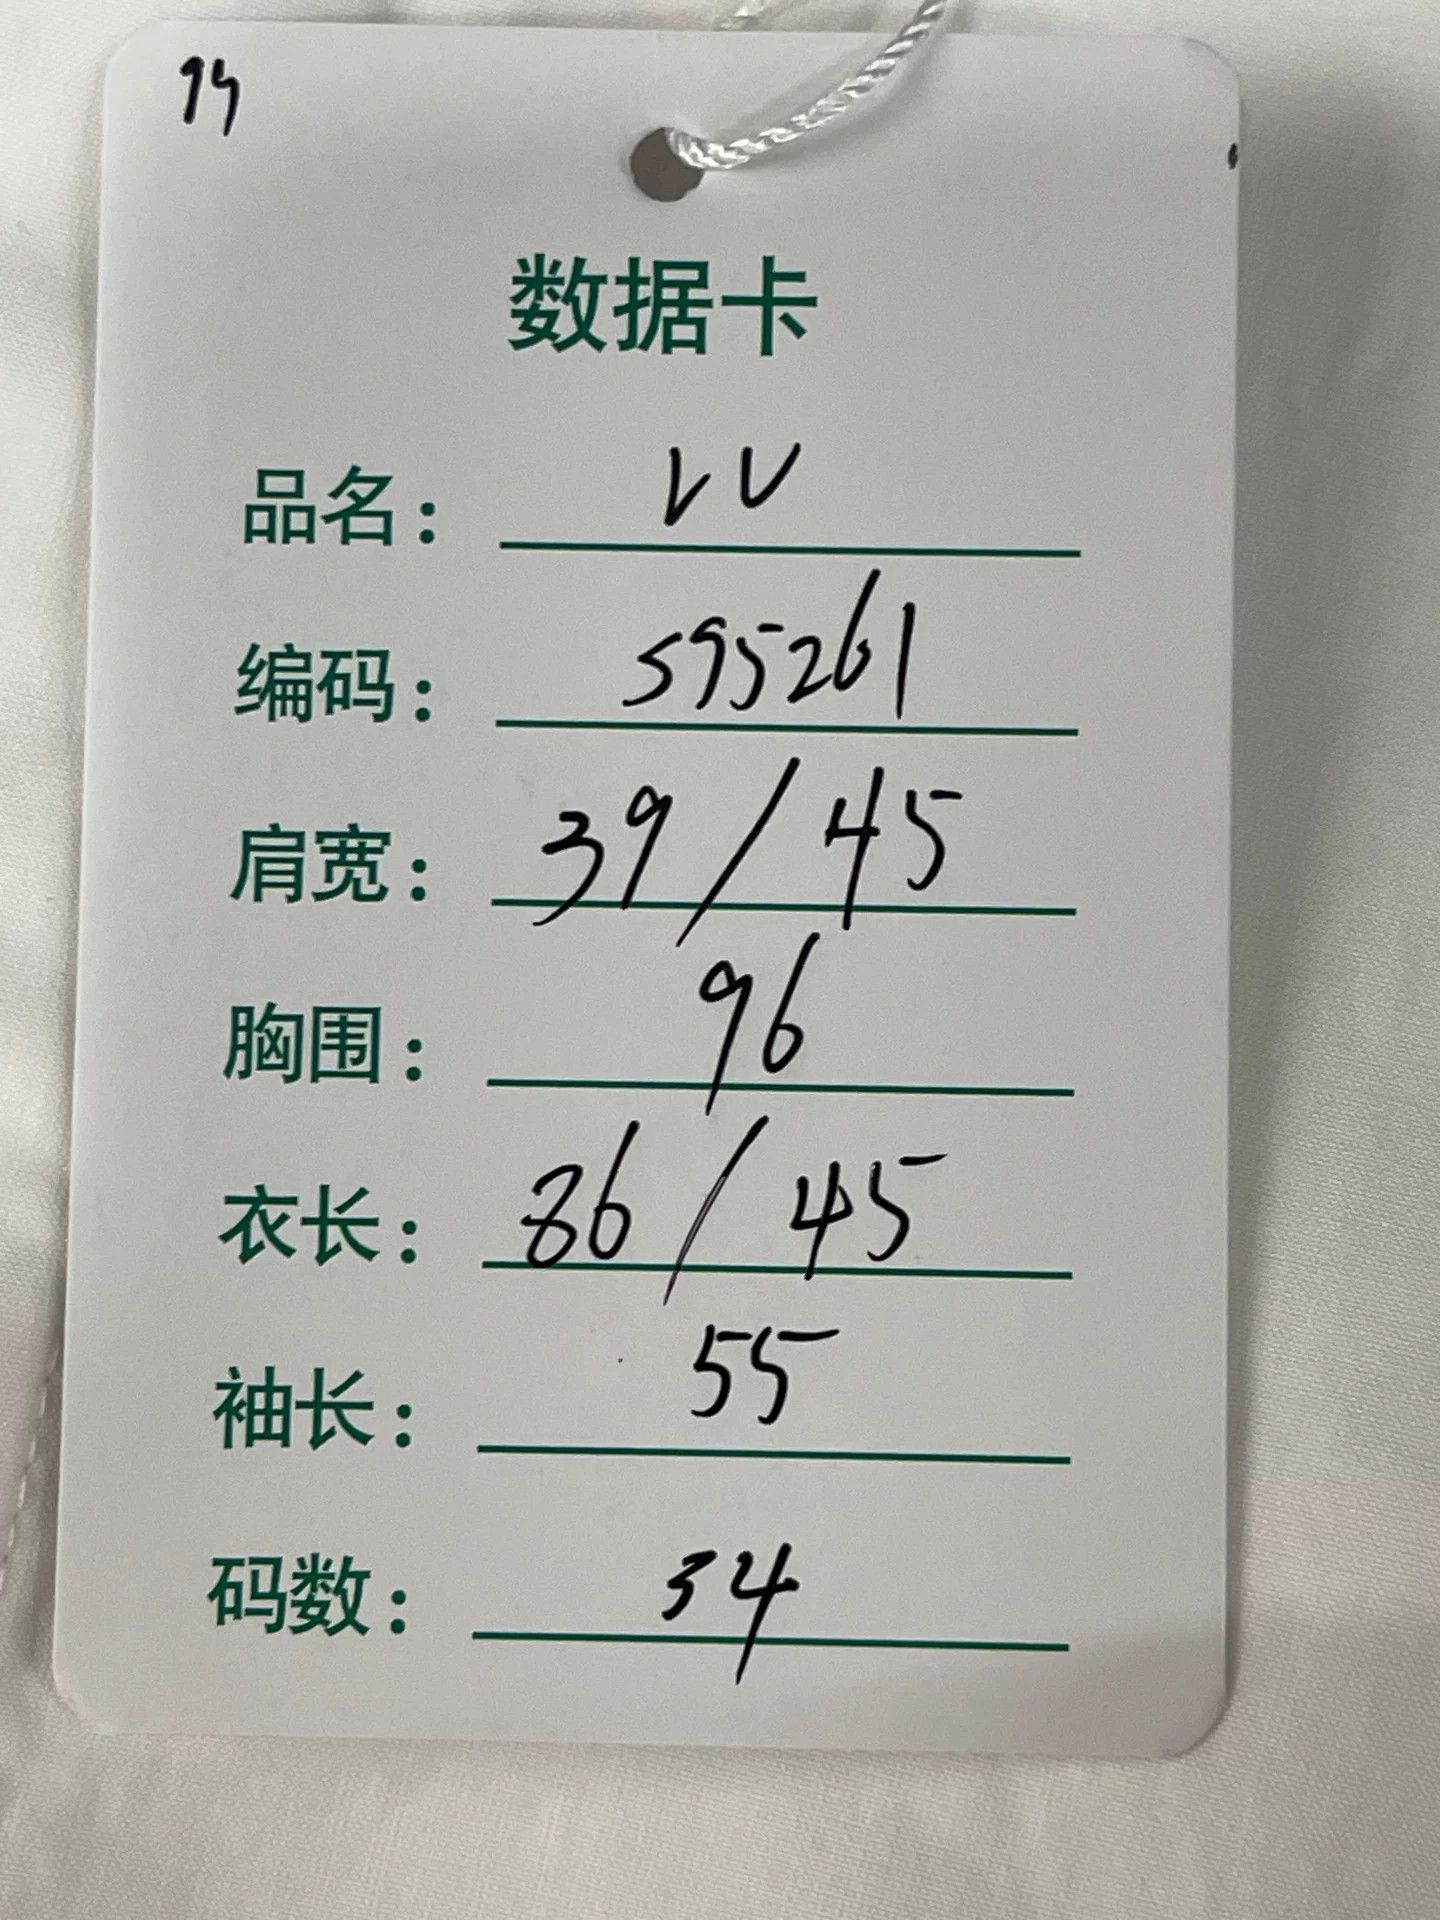 数据卡
品名: LV
编码: 595261
肩宽: 39/45
胸围: 96
衣长: 86/45
袖长: 55
码数: 34